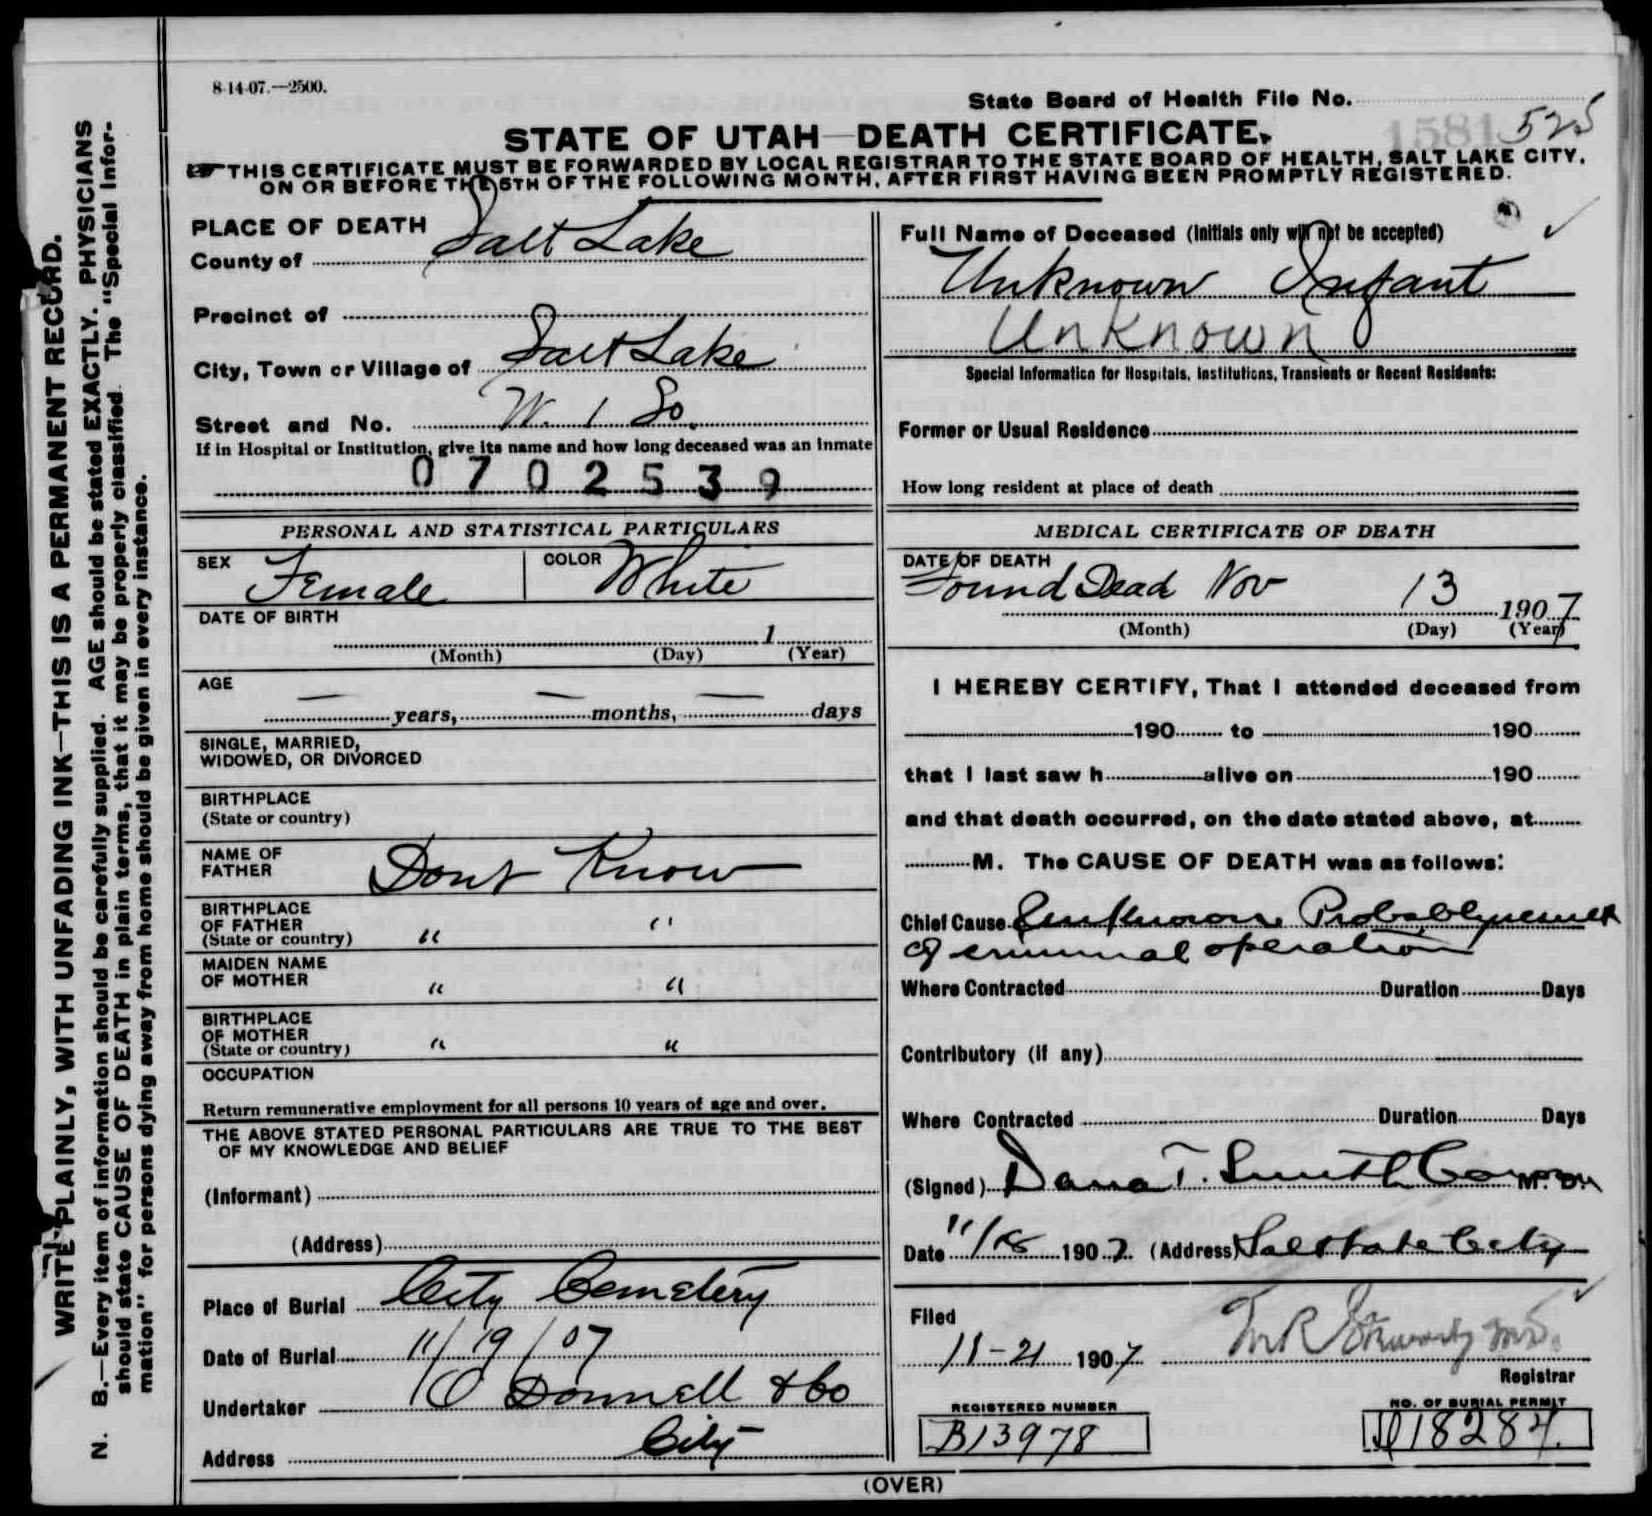 8-14-07.—2500.
State Board of Health File No.
1581 525
STATE OF UTAH—DEATH CERTIFICATE.
THIS CERTIFICATE MUST BE FORWARDED BY LOCAL REGISTRAR TO THE STATE BOARD OF HEALTH, SALT LAKE CITY,
ON OR BEFORE THE 5TH OF THE FOLLOWING MONTH, AFTER FIRST HAVING BEEN PROMPTLY REGISTERED.
PLACE OF DEATH
County of Salt Lake
Precinct of
City, Town or Village of Salt Lake
Street and No. W. 1 So.
If in Hospital or Institution, give its name and how long deceased was an inmate
0702539
Full Name of Deceased (Initials only will not be accepted)
Unknown Infant
Unknown
Special Information for Hospitals, Institutions, Transients or Recent Residents:
Former or Usual Residence
How long resident at place of death
PERSONAL AND STATISTICAL PARTICULARS
SEX Female COLOR White
DATE OF BIRTH
1
(Month) (Day) (Year)
AGE — — —
years, months, days
SINGLE, MARRIED,
WIDOWED, OR DIVORCED
BIRTHPLACE
(State or country)
NAME OF
FATHER Dont Know
BIRTHPLACE
OF FATHER
(State or country) " "
MAIDEN NAME
OF MOTHER " "
BIRTHPLACE
OF MOTHER
(State or country) " "
OCCUPATION
Return remunerative employment for all persons 10 years of age and over.
THE ABOVE STATED PERSONAL PARTICULARS ARE TRUE TO THE BEST
OF MY KNOWLEDGE AND BELIEF
(Informant)
(Address)
Place of Burial City Cemetery
Date of Burial 11/19/07
Undertaker O Donnell & Co
Address City
MEDICAL CERTIFICATE OF DEATH
DATE OF DEATH
Found Dead Nov 13 1907
(Month) (Day) (Year)
I HEREBY CERTIFY, That I attended deceased from
190 to 190
that I last saw h alive on 190
and that death occurred, on the date stated above, at
M. The CAUSE OF DEATH was as follows:
Chief Cause Unknown Probably result
of criminal operation
Where Contracted Duration Days
Contributory (if any)
Where Contracted Duration Days
(Signed) Dana T. Smith Coroner M. D.
Date 11/18 1907. (Address) Salt Lake City
Filed
11-21 1907
Registrar
REGISTERED NUMBER
B13978
NO. OF BURIAL PERMIT
D18284
(OVER)
WRITE PLAINLY, WITH UNFADING INK—THIS IS A PERMANENT RECORD.
N. B.—Every item of information should be carefully supplied. AGE should be stated EXACTLY. PHYSICIANS
should state CAUSE OF DEATH in plain terms, that it may be properly classified. The "Special Infor-
mation" for persons dying away from home should be given in every instance.